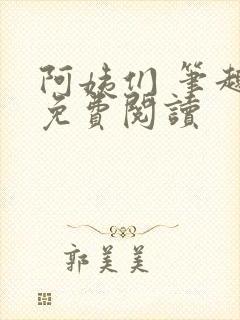 阿姨们 筆趣
免費閱讀
郭美美